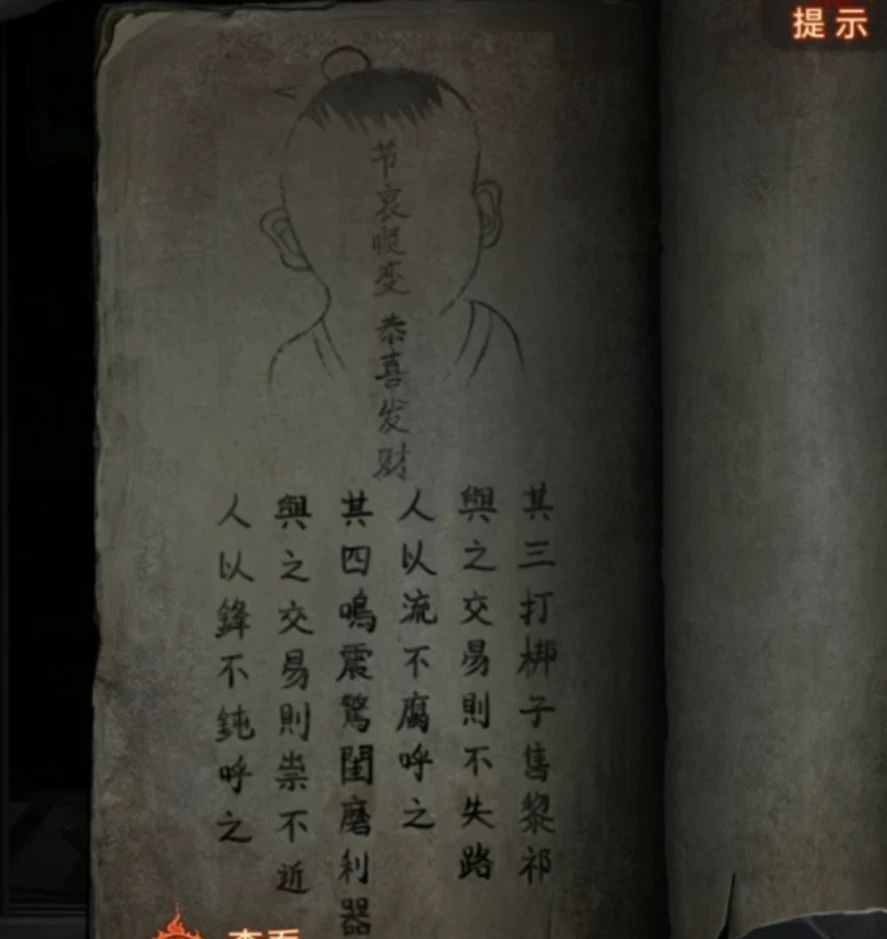 提示
节哀顺变 恭喜发财
其三打梆子售黎祁
與之交易則不失路
人以流不腐呼之
其四鳴震驚閨磨利器
與之交易則祟不近
人以鋒不鈍呼之
查看